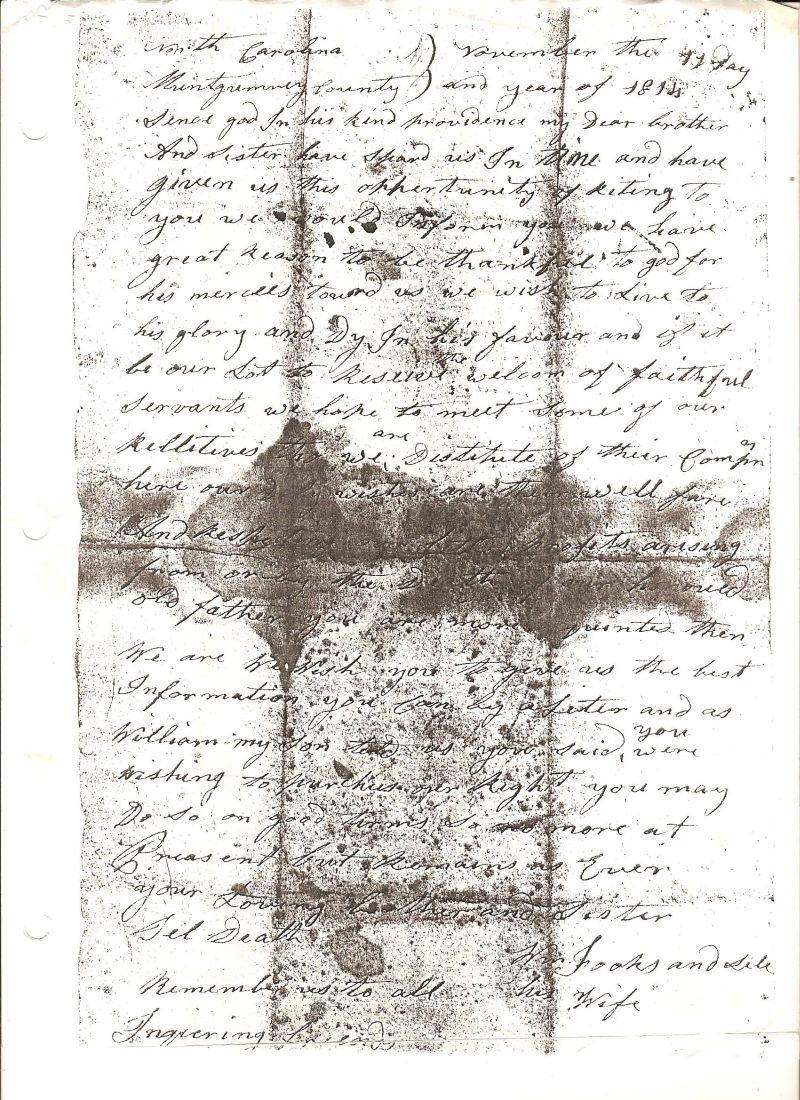 North Carolina ) November the 11 Day
Muntgumney County ) and year of 1814
Sence god In his kind providence my Dear brother
And Sister have spard us In time and have
given us this oppertunity of Riting to
you we would Inform you we have
great Reason to be thankful to god for
his mercies toward us we wish to Live to
his glory and Dy In his favour and if it
be our Lot to Reseive the welcom of faithful
Servants we hope to meet Some of our
Rellitives tho we are Destitute of their Compn
here our wishes are their well fare
And profits arising
from the Death of our
old father you are more then
We are We wish you to give us the best
Information you Can by a Leter and as
William my Son told us you said you were
wishing to purches our Right you may
Do so on good terms so no more at
Preasent but Remains as Ever
your Loving brother and Sister
Tel Death
Fooks and
Remember us to all his Wife
Inqiering friends